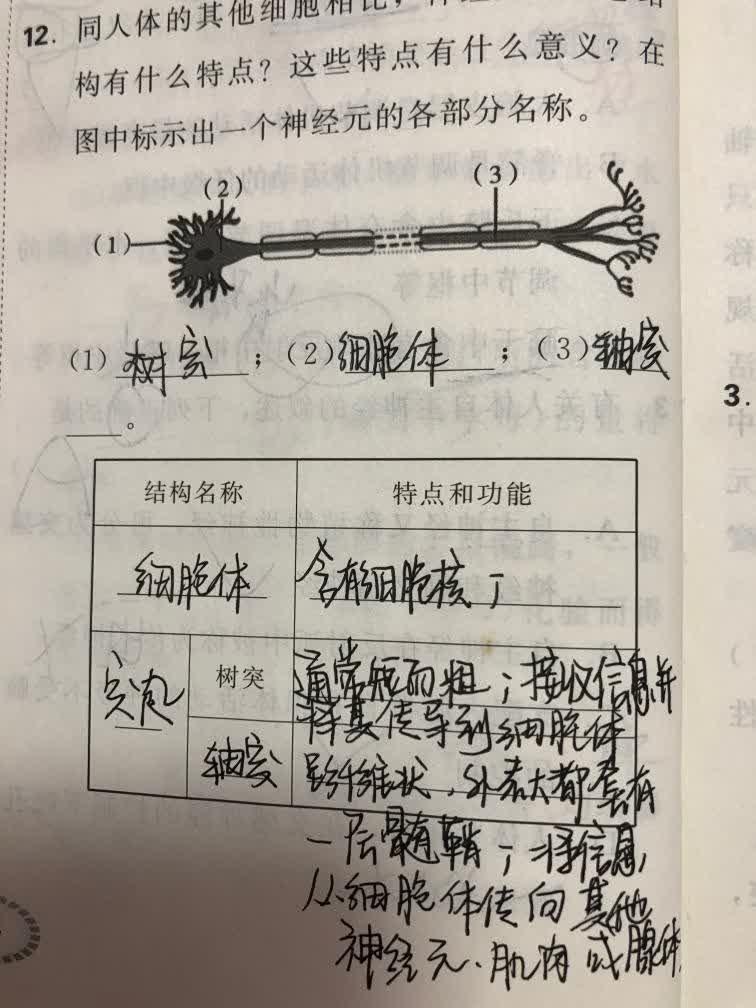 12. 同人体的其他细胞相比，
构有什么特点？这些特点有什么意义？在
图中标示出一个神经元的各部分名称。
(2) (3)
(1)
(1) 树突 ；(2) 细胞体 ；(3) 轴突
。
结构名称 特点和功能
细胞体 含有细胞核；
树突 通常短而粗；接收信息并
将其传导到细胞体
轴突 呈纤维状，外表大都套有
一层髓鞘；将信息
从细胞体传向其他
神经元、肌肉或腺体
3.